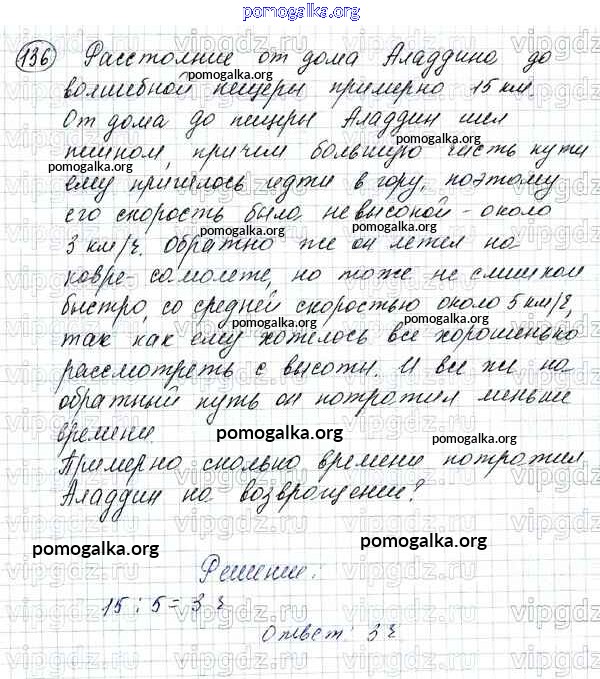 pomogalka.org
136 Расстояние от дома Аладдина до
pomogalka.org
волшебной пещеры примерно 15 км.
От дома до пещеры Аладдин шел
pomogalka.org
пешком, причем большую часть пути
pomogalka.org
ему пришлось идти в гору, поэтому
его скорость была невысокой - около
pomogalka.org
3 км/ч. Обратно же он летел на
pomogalka.org
ковре-самолете, но тоже не слишком
быстро, со средней скоростью около 5 км/ч,
pomogalka.org
так как ему хотелось все хорошенько
рассмотреть с высоты. И все же на
обратный путь он потратил меньше
времени
pomogalka.org pomogalka.org
Примерно сколько времени потратил
Аладдин на возвращение?
pomogalka.org pomogalka.org
Решение:
15 : 5 = 3 ч
Ответ: 3 ч